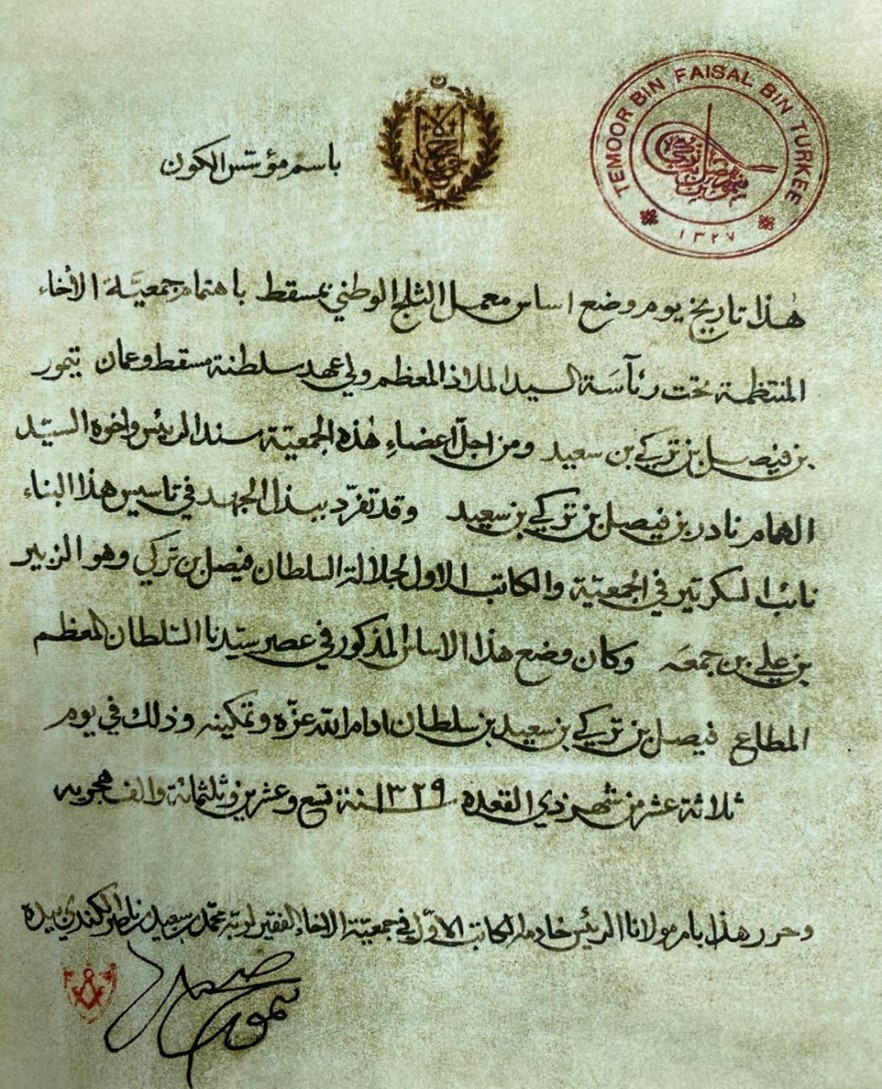 باسم مؤسس الكون
TEMOOR BIN FAISAL BIN TURKEE
١٣٢٧
هذا تاريخ يوم وضع اساس معمل الثلج الوطني بمسقط باهتمام جمعيّة الأخاء
المنتظمة تحت رئآسة السيد الملاذ المعظم ولي عهد سلطنة مسقط وعمان تيمور
بن فيصل بن تركي بن سعيد ومن اجلّ اعضاءِ هٰذه الجمعيّة سند الرئيس واخوه السيّد
الهمام نادر بن فيصل بن تركي بن سعيد وقد تفرّد ببذل الجهد في تاسيس هذا البناء
نائب السكرتير في الجمعيّة والكاتب الاول لجلالة السلطان فيصل بن تركي وهو الزبير
بن علي بن جمعه وكان وضع هذا الاساس المذكور في عصر سيّدنا السّلطان المعظم
المطاع فيصل بن تركي بن سعيد بن سلطان ادام الله عزّه وتمكينه وذلك في يوم
ثلاثة عشر من شهر ذي القعده ١٣٢٩ سنة تسع وعشرين وثلثمائة والف هجريه
وحرر هذا بامر مولانا الرئيس خادمه الكاتب الاوّل في جمعيّة الاخاء الفقير لربّه محمّد بن سعيد بن ناصر الكندي بيده
صحيح
تيمور